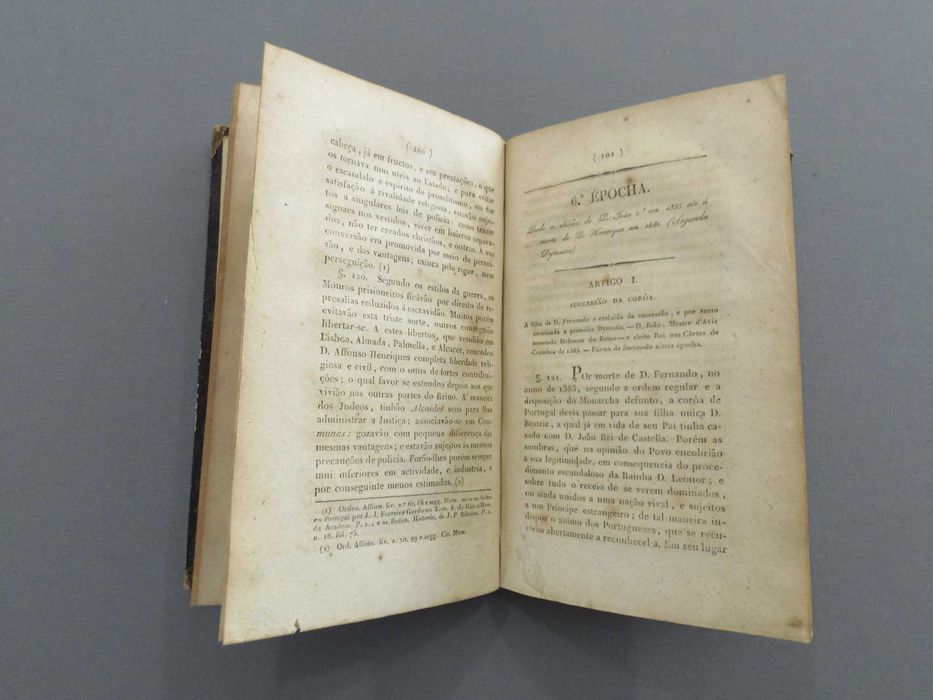 ( 100 )
cabeça, já em fructos, e em prestações, o que
os tornava mui uteis ao Estado; e para evitar
o escandalo e espirito de proselitismo, ou dar
satisfação á rivalidade religiosa, estavão sujei-
tos a singulares leis de policia: como trazer
signaes nos vestidos, viver em bairros separa-
dos, não ter creados christãos, e outras. A sua
conversão era promovida por meio da persua-
são, e das vantagens; nunca pelo rigor, nem
perseguição. (1)
§. 120. Segundo os estilos da guerra, os
Mouros prisioneiros ficavão por direito de re-
presalias reduzidos á escravidão. Muitos porém
evitavão esta triste sorte, outros conseguião
libertar-se. A estes libertos, que residião em
Lisboa, Almada, Palmella, e Alcacer, concedeo
D. Affonso Henriques completa liberdade reli-
giosa e civil, com o onus de fortes contribui-
ções; o qual favor se estendeo depois aos que
vivião nas outras partes do Reino. A' maneira
dos Judeos, tinhão Alcaides seus para lhes
administrar a Justiça; associavão-se em Com-
munas: gozavão com pequena differença das
mesmas vantagens; e estavão sujeitos ás mesmas
precauções de policia. Forão-lhes porém sempre
mui inferiores em actividade, e industria, e
por conseguinte menos estimados. (2)
(1) Orden. Affons. liv. 2.º tit. 66 e segg. Mem. sobre os Judeos
em Portugal por J. J. Ferreira Gordo no Tom. 8. da Hist. e Mem.
da Academ. P. 2., e as Reflex. Historic. de J. P. Ribeiro, P. 1.
n. 18. fol. 75.
(2) Ord. Affons. liv. 2. tit. 99 e segg. Cit. Mem.
( 101 )
6.ª ÉPOCHA.
Desde a eleição de D. João 1.º em 1385 até á
morte de D. Henrique em 1580. (Segunda
Dynastia)
ARTIGO I.
SUCCESSÃO DA COROA.
A filha de D. Fernando é excluida da successão, e por tanto
terminada a primeira Dynastia. — D. João, Mestre d'Aviz
nomeado Defensor do Reino — e eleito Rei nas Côrtes de
Coimbra de 1385. — Fórma da Successão n'esta época.
§. 121. Por morte de D. Fernando, no
anno de 1383, segundo a ordem regular e a
disposição do Monarcha defunto, a corôa de
Portugal devia passar para sua filha unica D.
Beatriz, a qual já em vida de seu Pai tinha ca-
sado com D. João Rei de Castella. Porém as
sombras, que na opinião do Povo encobrião
a sua legitimidade, em consequencia do proce-
dimento escandaloso da Rainha D. Leonor; e
sobre tudo o receio de se verem dominados,
ou ainda unidos a uma nação rival, e sujeitos
a um Principe estrangeiro; de tal maneira in-
dispoz o animo dos Portuguezes, que se recu-
sárão abertamente a reconhecel-a. Em seu lugar